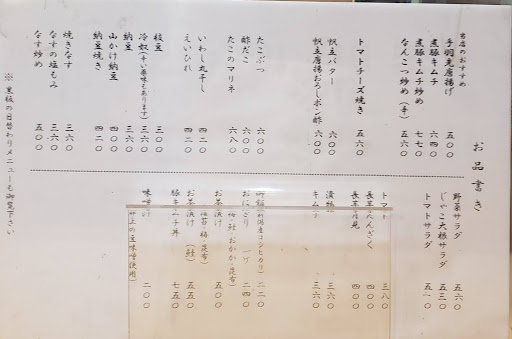 お品書き
当店のおすすめ
手羽先唐揚げ 五〇〇
煮豚キムチ 六四〇
煮豚キムチ炒め 七七〇
なんこつ炒め(辛) 五六〇
トマトチーズ焼き 五六〇
帆立バター 六〇〇
帆立唐揚おろしポン酢 六〇〇
たこぶつ 六〇〇
酢だこ 六〇〇
たこのマリネ 六八〇
いわし丸干し 四二〇
えいひれ 四二〇
枝豆 三〇〇
冷奴(辛い薬味もあります) 三六〇
納豆 三六〇
山かけ納豆 四二〇
納豆焼き 四八〇
焼きなす 三六〇
なすの塩もみ 三六〇
なす炒め 五〇〇
※黒板の日替わりメニューも御覧下さい
野菜サラダ 五六〇
じゃこ大根サラダ 五三〇
トマトサラダ 五一〇
トマト 三八〇
長芋たんざく 四〇〇
長芋月見 四〇〇
漬物 三六〇
キムチ 三六〇
御飯(新潟産コシヒカリ) 二二〇
おにぎり 一ケ 二四〇
(梅・鮭・おかか・昆布)
お茶漬け 五〇〇
(海苔・梅・昆布)
お茶漬け(鮭) 五五〇
豚キムチ丼 七五〇
味噌汁 二〇〇